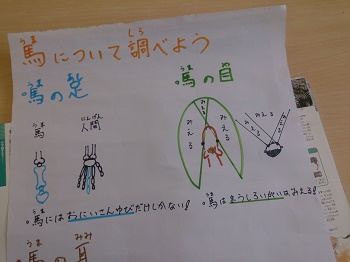 馬について調べよう
うま
しろ
馬の足
うま
馬の目
うま
馬
うま
人間
にんげん
みえる
みえる
みえる
みえる
みえる
馬にはおにいさんゆびだけしかない!
うま
馬はまうしろいがいはみえる!
うま
馬の耳
うま
みみ